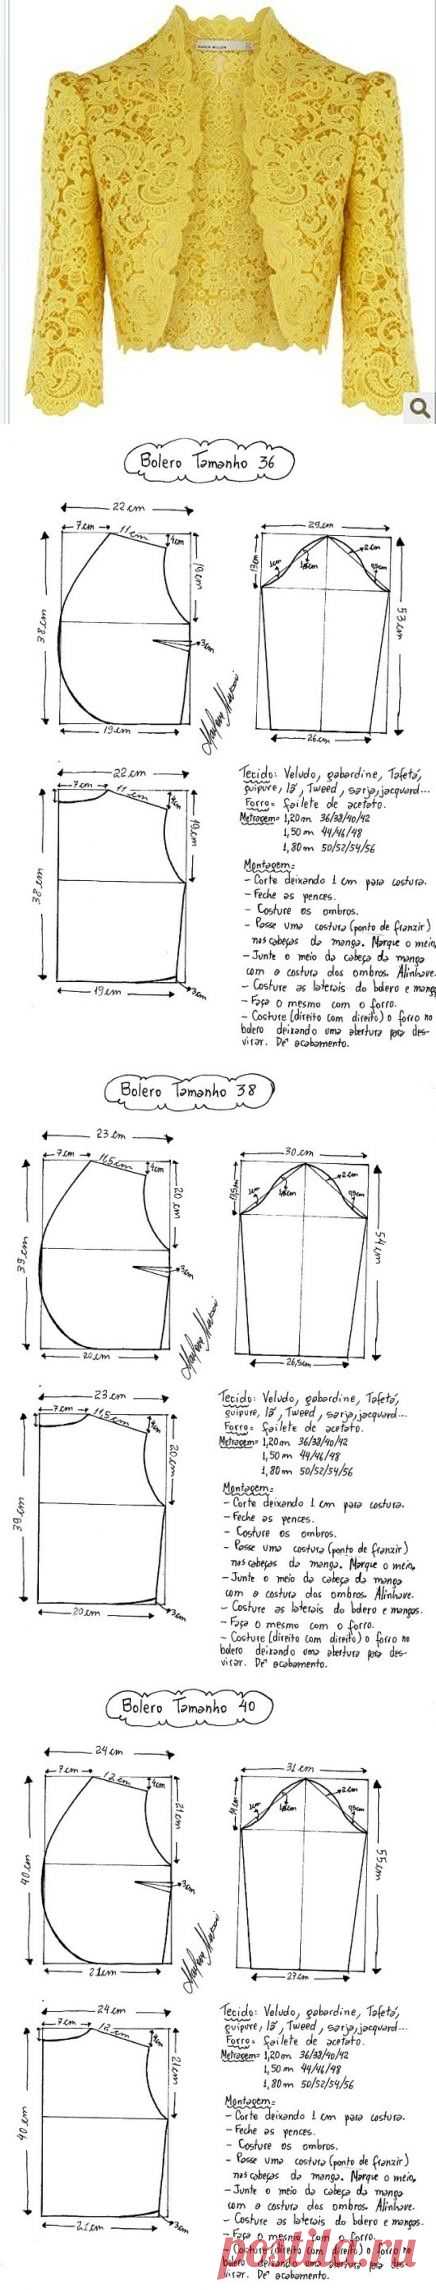 KAREN MILLEN
Bolero Tamanho 36
22cm
7cm
11cm
4cm
19cm
38cm
3cm
19cm
29cm
2cm
1cm
13cm
53cm
26cm
22cm
7cm
11cm
4cm
19cm
38cm
3cm
19cm
Tecido: Veludo, gabardine, Tafetá,
guipure, lã, Tweed, sarja, jacquard...
Forro= failete de acetato.
Metragem= 1,20m 36/38/40/42
1,50m 44/46/48
1,80m 50/52/54/56
Montagem=
- Corte deixando 1 cm para costura.
- Feche as pences.
- Costure os ombros.
- Passe uma costura (ponto de franzir)
nas cabeças da manga. Marque o meio,
- Junte o meio da cabeça da manga
com a costura dos ombros. Alinhave.
- Costure as laterais do bolero e mang
- Faça o mesmo com o forro.
- Costure (direito com direito) o forro no
bolero deixando uma abertura para des-
virar. Dê acabamento.
Bolero Tamanho 38
23cm
7cm
11,5cm
4cm
20cm
39cm
3cm
20cm
30cm
2cm
1cm
13,5cm
54cm
26,5cm
23cm
7cm
11,5cm
4cm
20cm
39cm
3cm
20cm
Tecido: Veludo, gabardine, Tafetá,
guipure, lã, Tweed, sarja, jacquard...
Forro= failete de acetato.
Metragem= 1,20m 36/38/40/42
1,50m 44/46/48
1,80m 50/52/54/56
Montagem=
- Corte deixando 1 cm para costura.
- Feche as pences.
- Costure os ombros.
- Passe uma costura (ponto de franzir)
nas cabeças da manga. Marque o meio,
- Junte o meio da cabeça da manga
com a costura dos ombros. Alinhave.
- Costure as laterais do bolero e mangas.
- Faça o mesmo com o forro.
- Costure (direito com direito) o forro no
bolero deixando uma abertura para des-
virar. Dê acabamento.
Bolero Tamanho 40
24cm
7cm
12cm
4cm
21cm
40cm
3cm
21cm
31cm
2cm
1cm
14cm
55cm
27cm
24cm
7cm
12cm
4cm
21cm
40cm
3cm
21cm
Tecido: Veludo, gabardine, Tafetá,
guipure, lã, Tweed, sarja, jacquard...
Forro= failete de acetato.
Metragem= 1,20m 36/38/40/42
1,50m 44/46/48
1,80m 50/52/54/56
Montagem=
- Corte deixando 1 cm para costura.
- Feche as pences.
- Costure os ombros.
- Passe uma costura (ponto de franzir)
nas cabeças da manga. Marque o meio,
- Junte o meio da cabeça da manga
com a costura dos ombros. Alinhave.
- Costure as laterais do bolero e mangas.
- Faça o mesmo com o forro.
- Costure (direito com direito) o forro no
bolero deixando uma abertura para des-
virar. Dê acabamento.
postila.ru